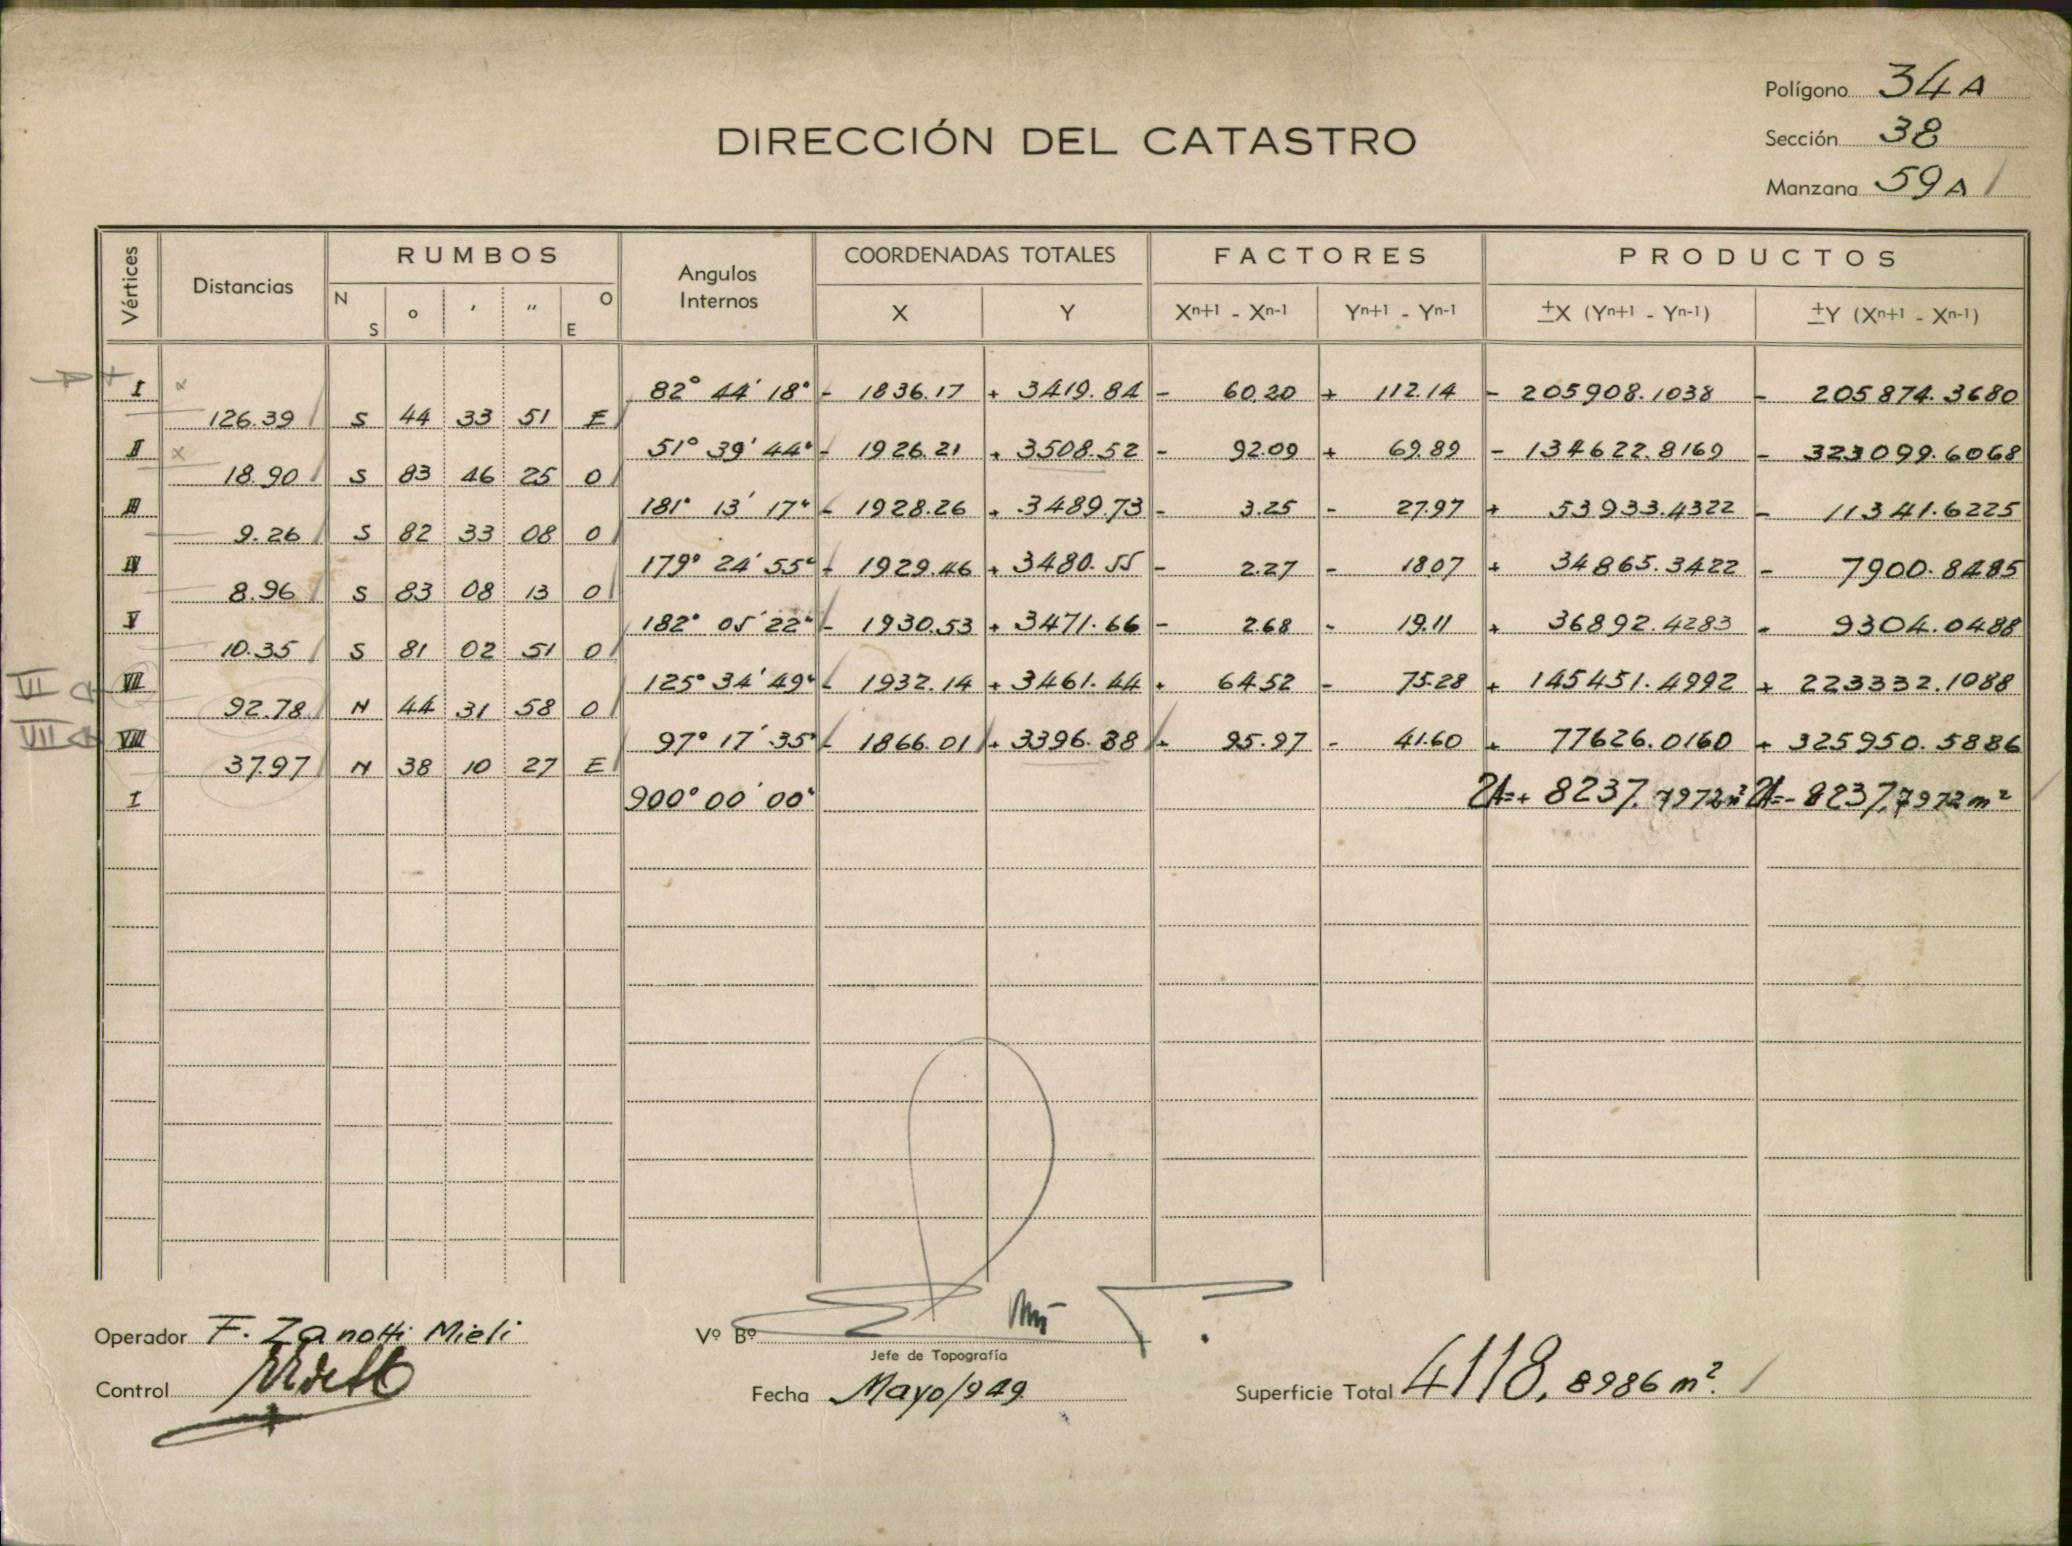 Polígono 34 A
DIRECCIÓN DEL CATASTRO
Sección 38
Manzana 59 A
Vértices Distancias RUMBOS Angulos Internos COORDENADAS TOTALES FACTORES PRODUCTOS
N S ° ' " O E X Y Xn+1 - Xn-1 Yn+1 - Yn-1 ±X (Yn+1 - Yn-1) ±Y (Xn+1 - Xn-1)
I 82° 44' 18" - 1836.17 + 3419.84 - 60.20 + 112.14 - 205908.1038 - 205874.3680
126.39 S 44 33 51 E
II 51° 39' 44" - 1926.21 + 3508.52 - 92.09 + 69.89 - 134622.8169 - 323099.6068
18.90 S 83 46 25 O
III 181° 13' 17" - 1928.26 + 3489.73 - 3.25 - 27.97 + 53933.4322 - 11341.6225
9.26 S 82 33 08 O
IV 179° 24' 55" - 1929.46 + 3480.55 - 2.27 - 18.07 + 34865.3422 - 7900.8485
8.96 S 83 08 13 O
V 182° 05' 22" - 1930.53 + 3471.66 - 2.68 - 19.11 + 36892.4283 - 9304.0488
10.35 S 81 02 51 O
VI VII 125° 34' 49" - 1932.14 + 3461.44 + 64.52 - 75.28 + 145451.4992 + 223332.1088
92.78 N 44 31 58 O
VII VIII 97° 17' 35" - 1866.01 + 3396.38 + 95.97 - 41.60 + 77626.0160 + 325950.5886
37.97 N 38 10 27 E
I 900° 00' 00" 2A=+ 8237.7972 m² 2A=- 8237.7972 m²
Operador F. Zanotti Mieli
Vº Bº
Jefe de Topografía
Control
Fecha Mayo/949
Superficie Total 4118,8986 m².